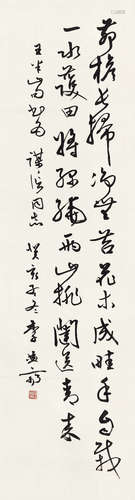 茅檐长扫净无苔花木成畦手自栽
一水护田将绿绕两山排闼送青来
王半山句
汉滨同志
癸亥冬李